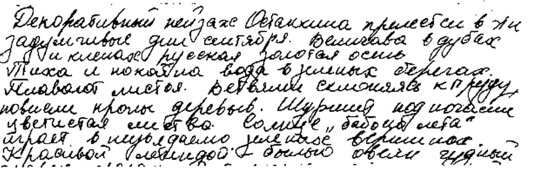 Декоративный пейзаж Останкина прелестен в эти
задумчивые дни сентября. Величава в дубах
и кленах русская золотая осень
Тиха и покатна вода в зеленых берегах.
Плавают листья. Ветвями склоняясь к пруду,
повисли кроны деревьев. Шуршит под ногами
цветистая листва. Солнце „бабьего лета"
играет в увядаемо зеленых вершинах.
Красивой легендой - былью овеян чудный